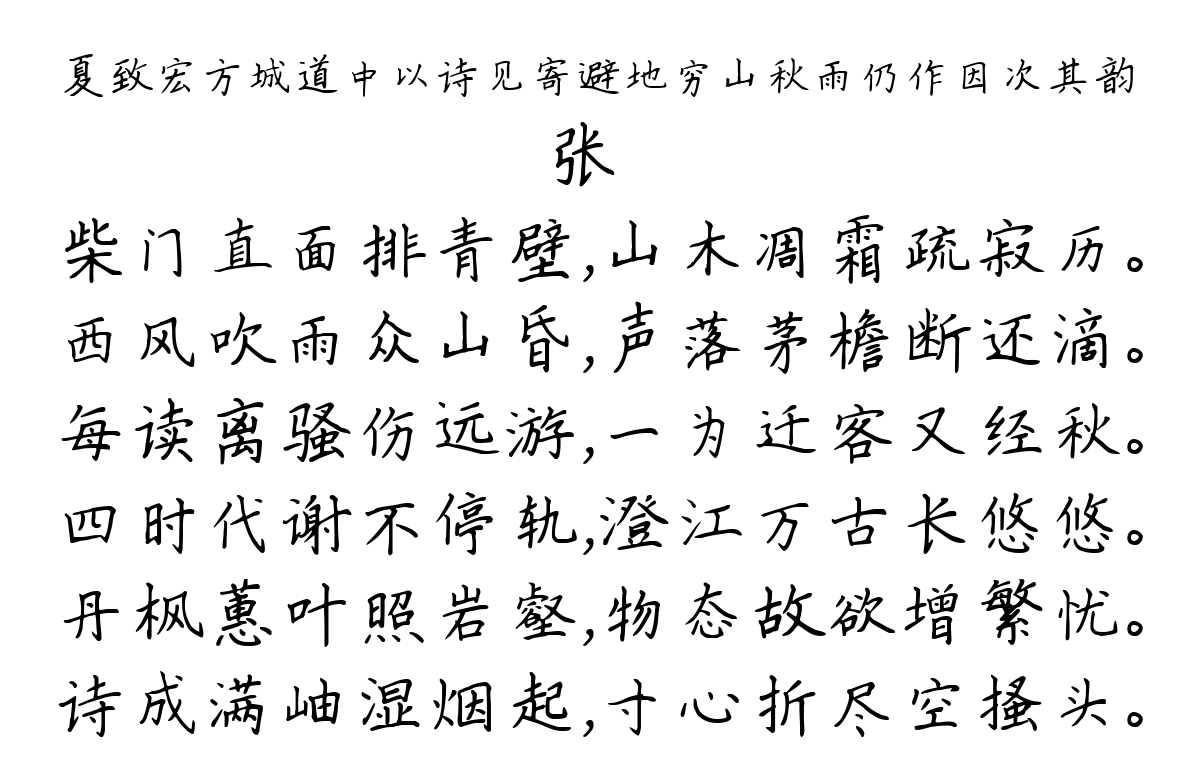 夏致宏方城道中以诗见寄避地穷山秋雨仍作因次其韵
张
柴门直面排青壁,山木凋霜疏寂历。
西风吹雨众山昏,声落茅檐断还滴。
每读离骚伤远游,一为迁客又经秋。
四时代谢不停轨,澄江万古长悠悠。
丹枫蕙叶照岩壑,物态故欲增繁忧。
诗成满岫湿烟起,寸心折尽空搔头。